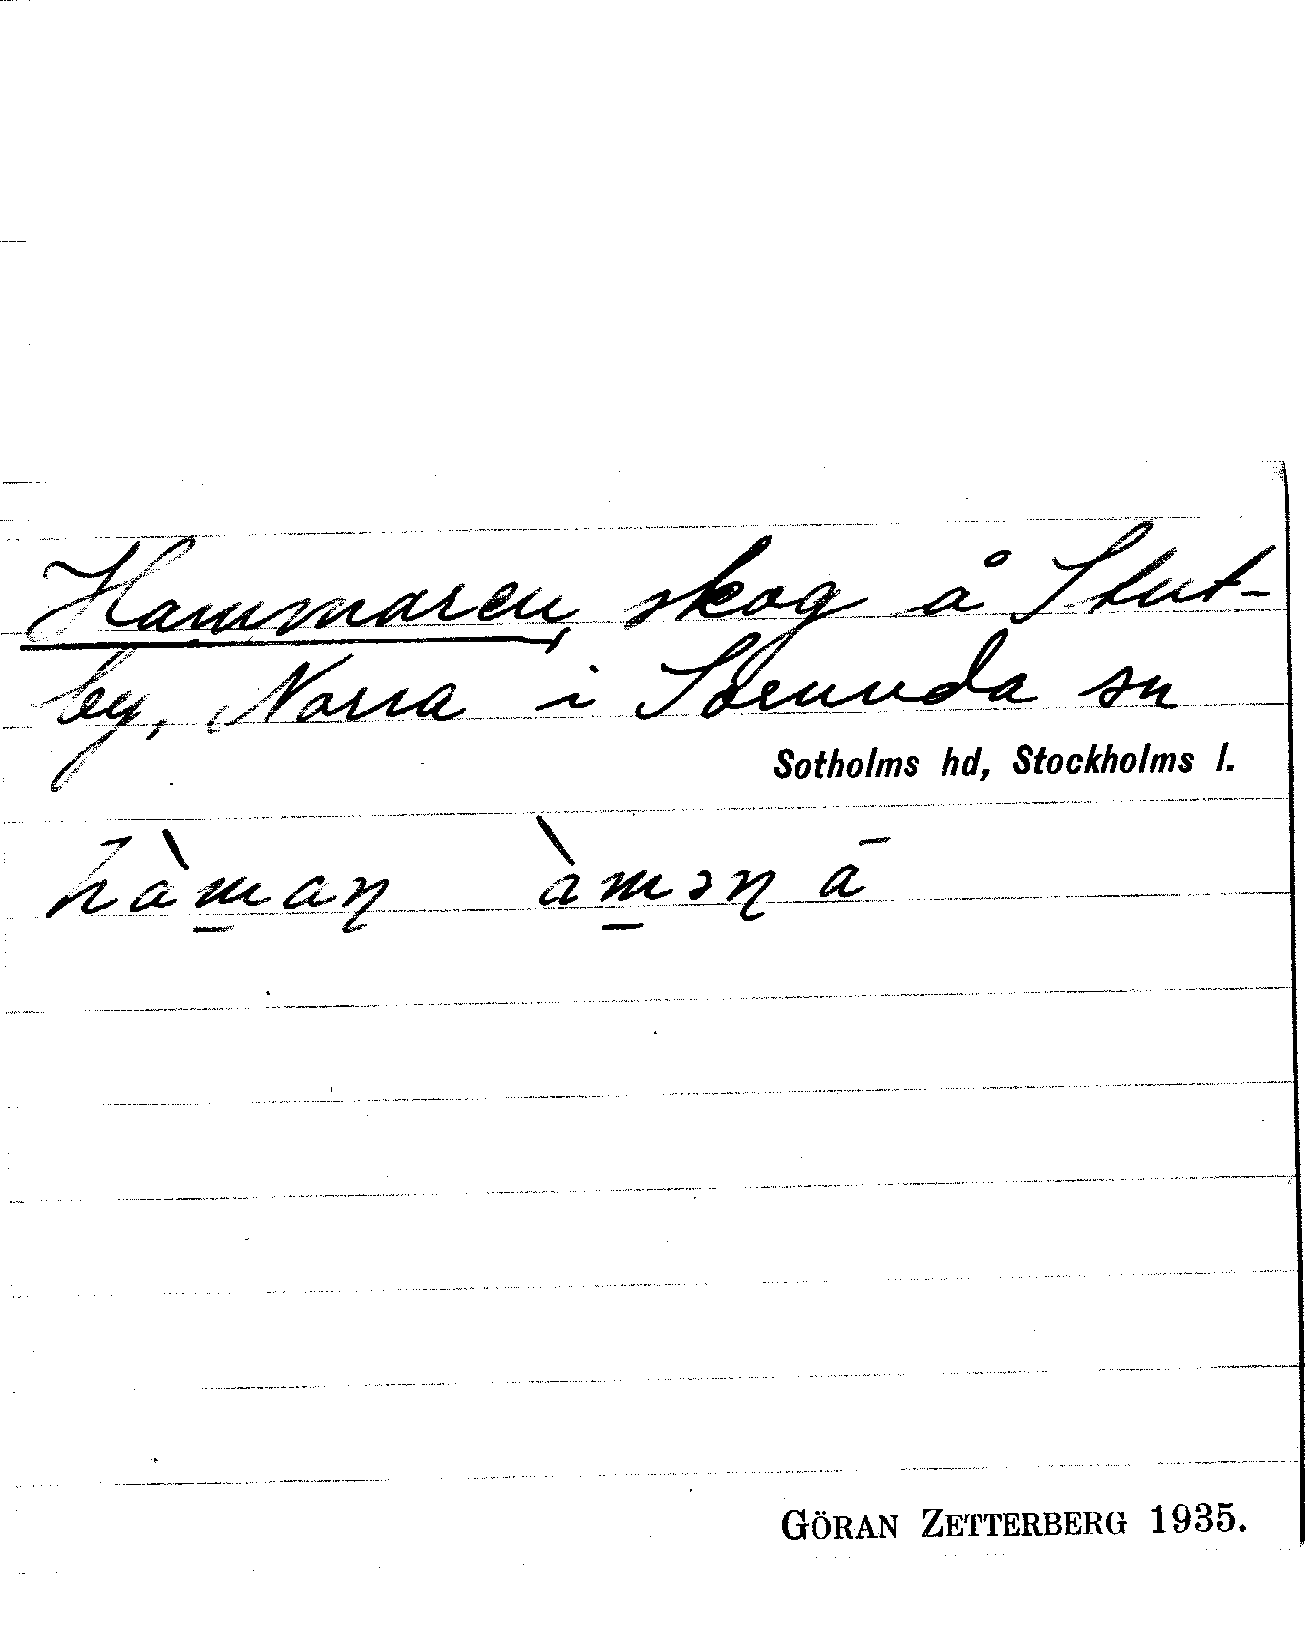 Hammaren, skog å Stut-
by, Norra i Sorunda sn
Sotholms hd, Stockholms l.
hàm̲aƞ àm̲ɔƞ ā
GÖRAN ZETTERBERG 1935.